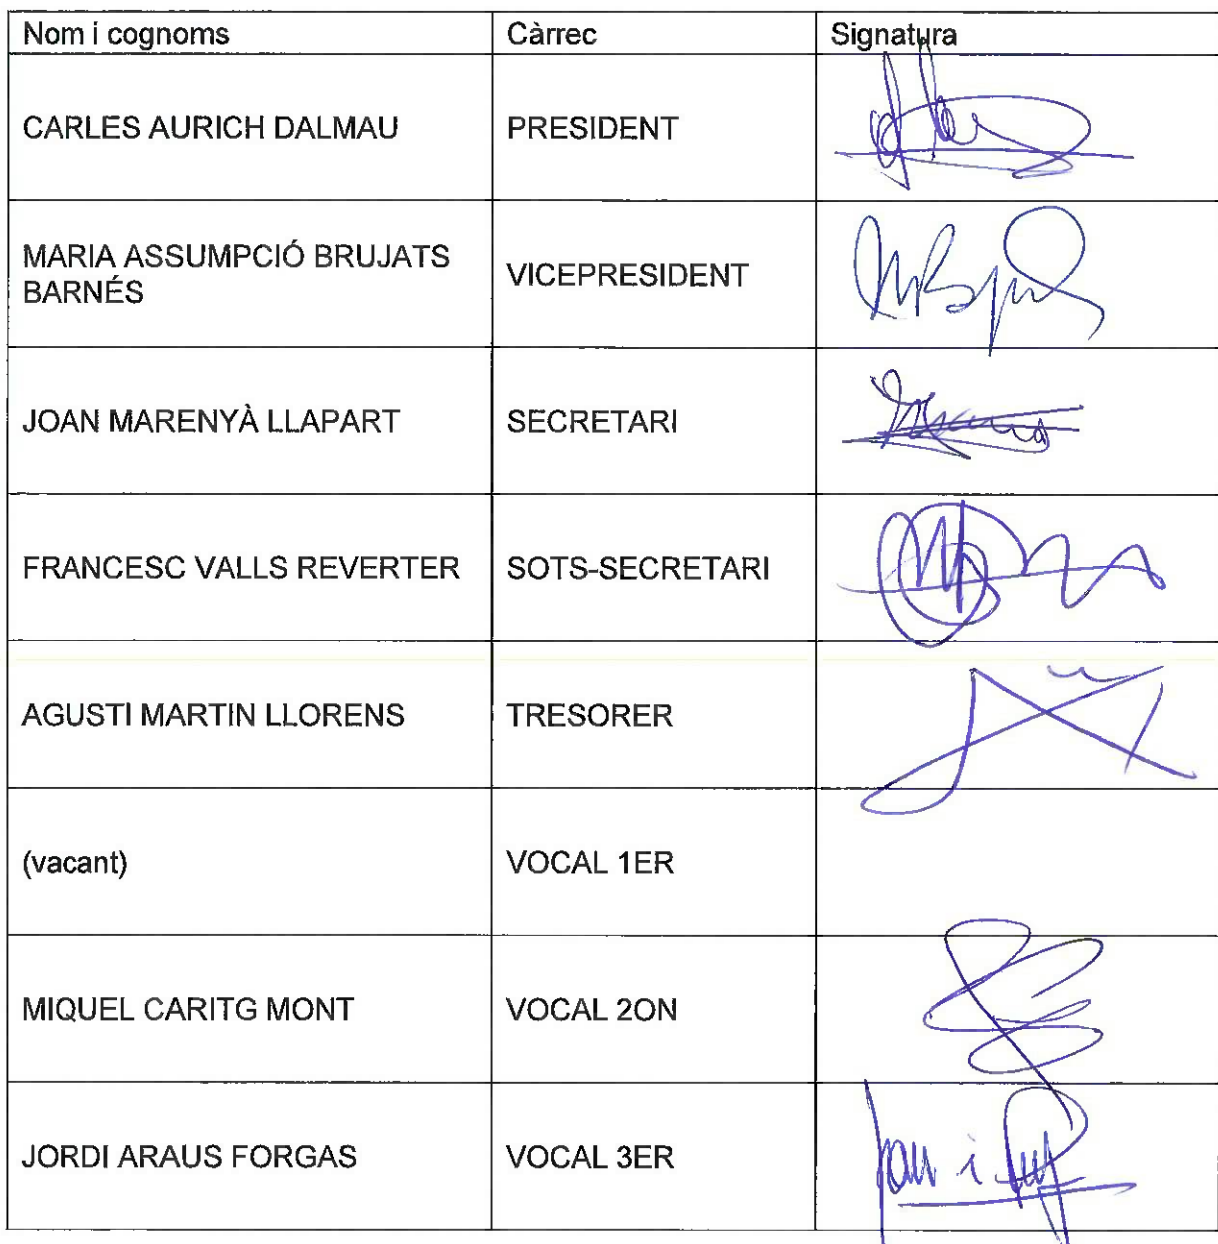 Nom i cognoms Càrrec Signatura
CARLES AURICH DALMAU PRESIDENT
MARIA ASSUMPCIÓ BRUJATS
BARNÉS VICEPRESIDENT
JOAN MARENYÀ LLAPART SECRETARI
FRANCESC VALLS REVERTER SOTS-SECRETARI
AGUSTI MARTIN LLORENS TRESORER
(vacant) VOCAL 1ER
MIQUEL CARITG MONT VOCAL 2ON
JORDI ARAUS FORGAS VOCAL 3ER